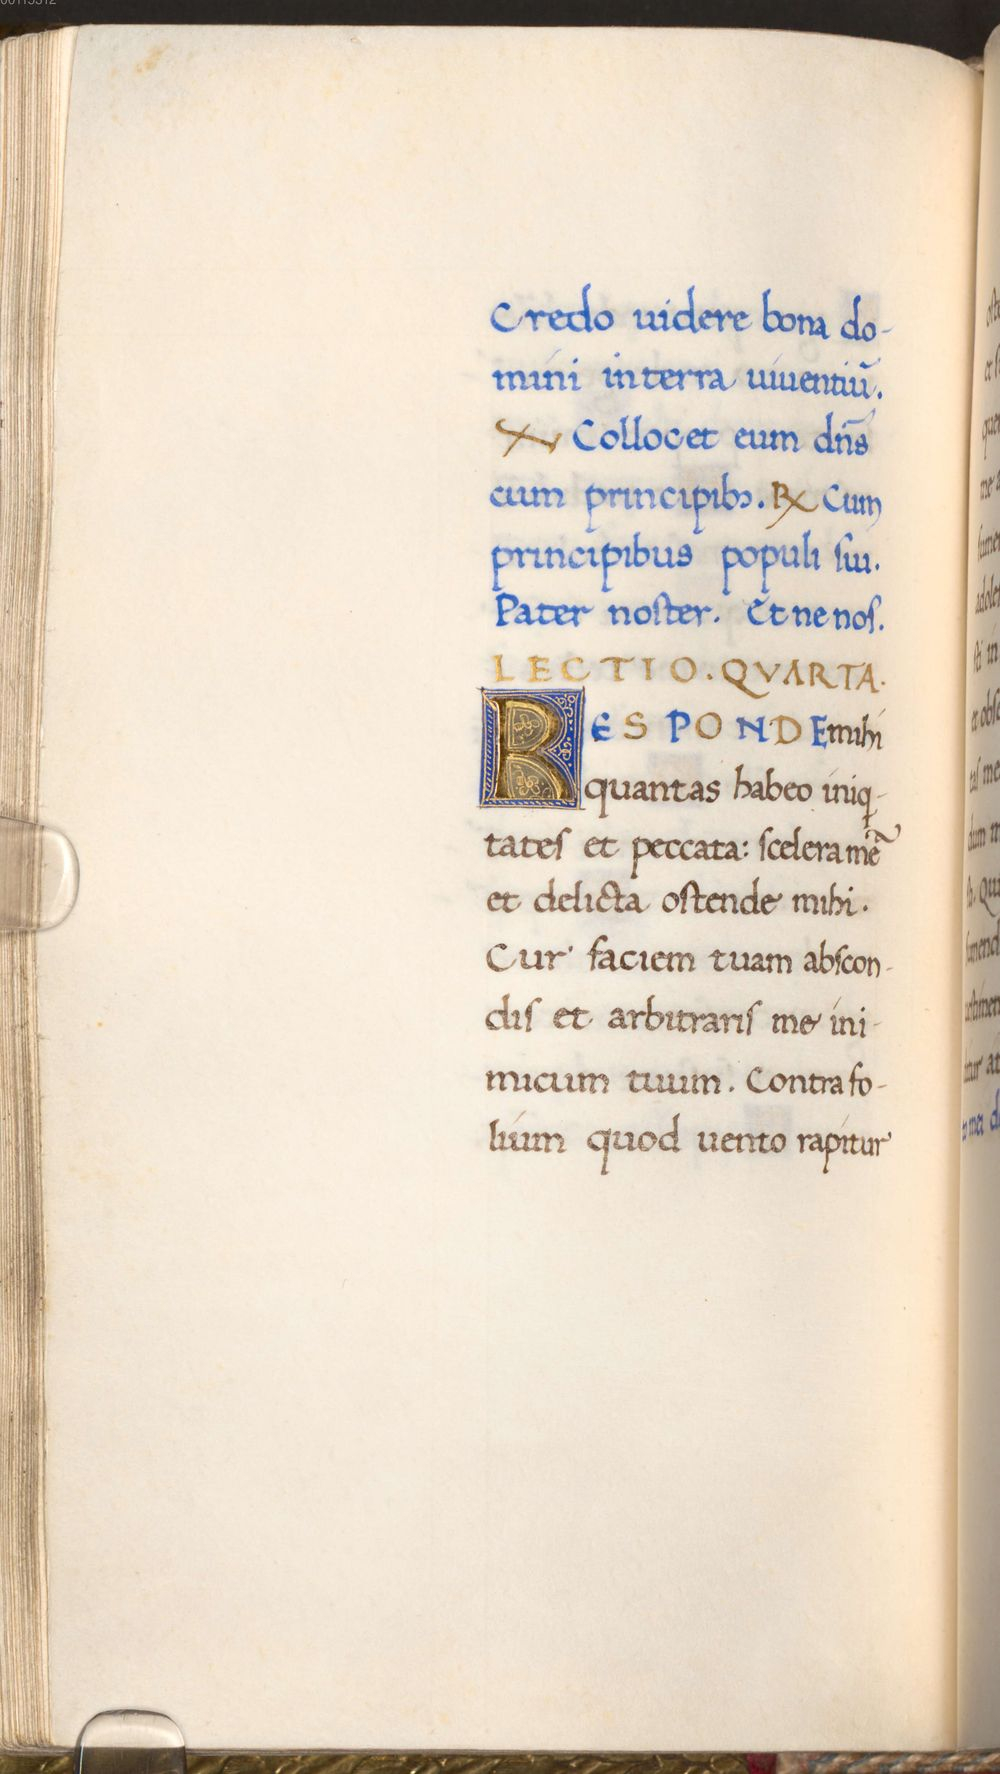 Credo uidere bona do-
mini in terra uiuentiū.
℣ Collocet eum dn̄s
cum principibꝫ. ℞ Cum
principibus populi ſui.
Pater noſter. Et ne noſ.
LECTIO. QVARTA.
RESPONDE mihi
quantas habeo iniq-
tateſ et peccata: ſcelera mea
et delicta oſtende mihi.
Cur faciem tuam abſcon-
diſ et arbitrariſ me ini-
micum tuum. Contra fo-
lium quod uento rapitur